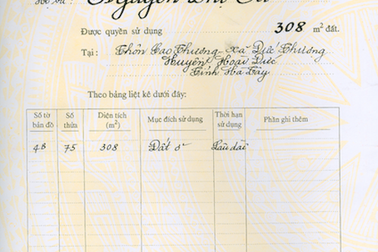 Nguyễn Thị
Được quyền sử dụng 308 m² đất.
Tại : Thôn Cao Thượng - Xã Đức Thượng
Huyện Hoài Đức
Tỉnh Hà Tây
Theo bảng liệt kê dưới đây:
Số tờ bản đồ Số thửa Diện tích (m²) Mục đích sử dụng Thời hạn sử dụng Phần ghi thêm
48 75 308 Đất ở Lâu dài